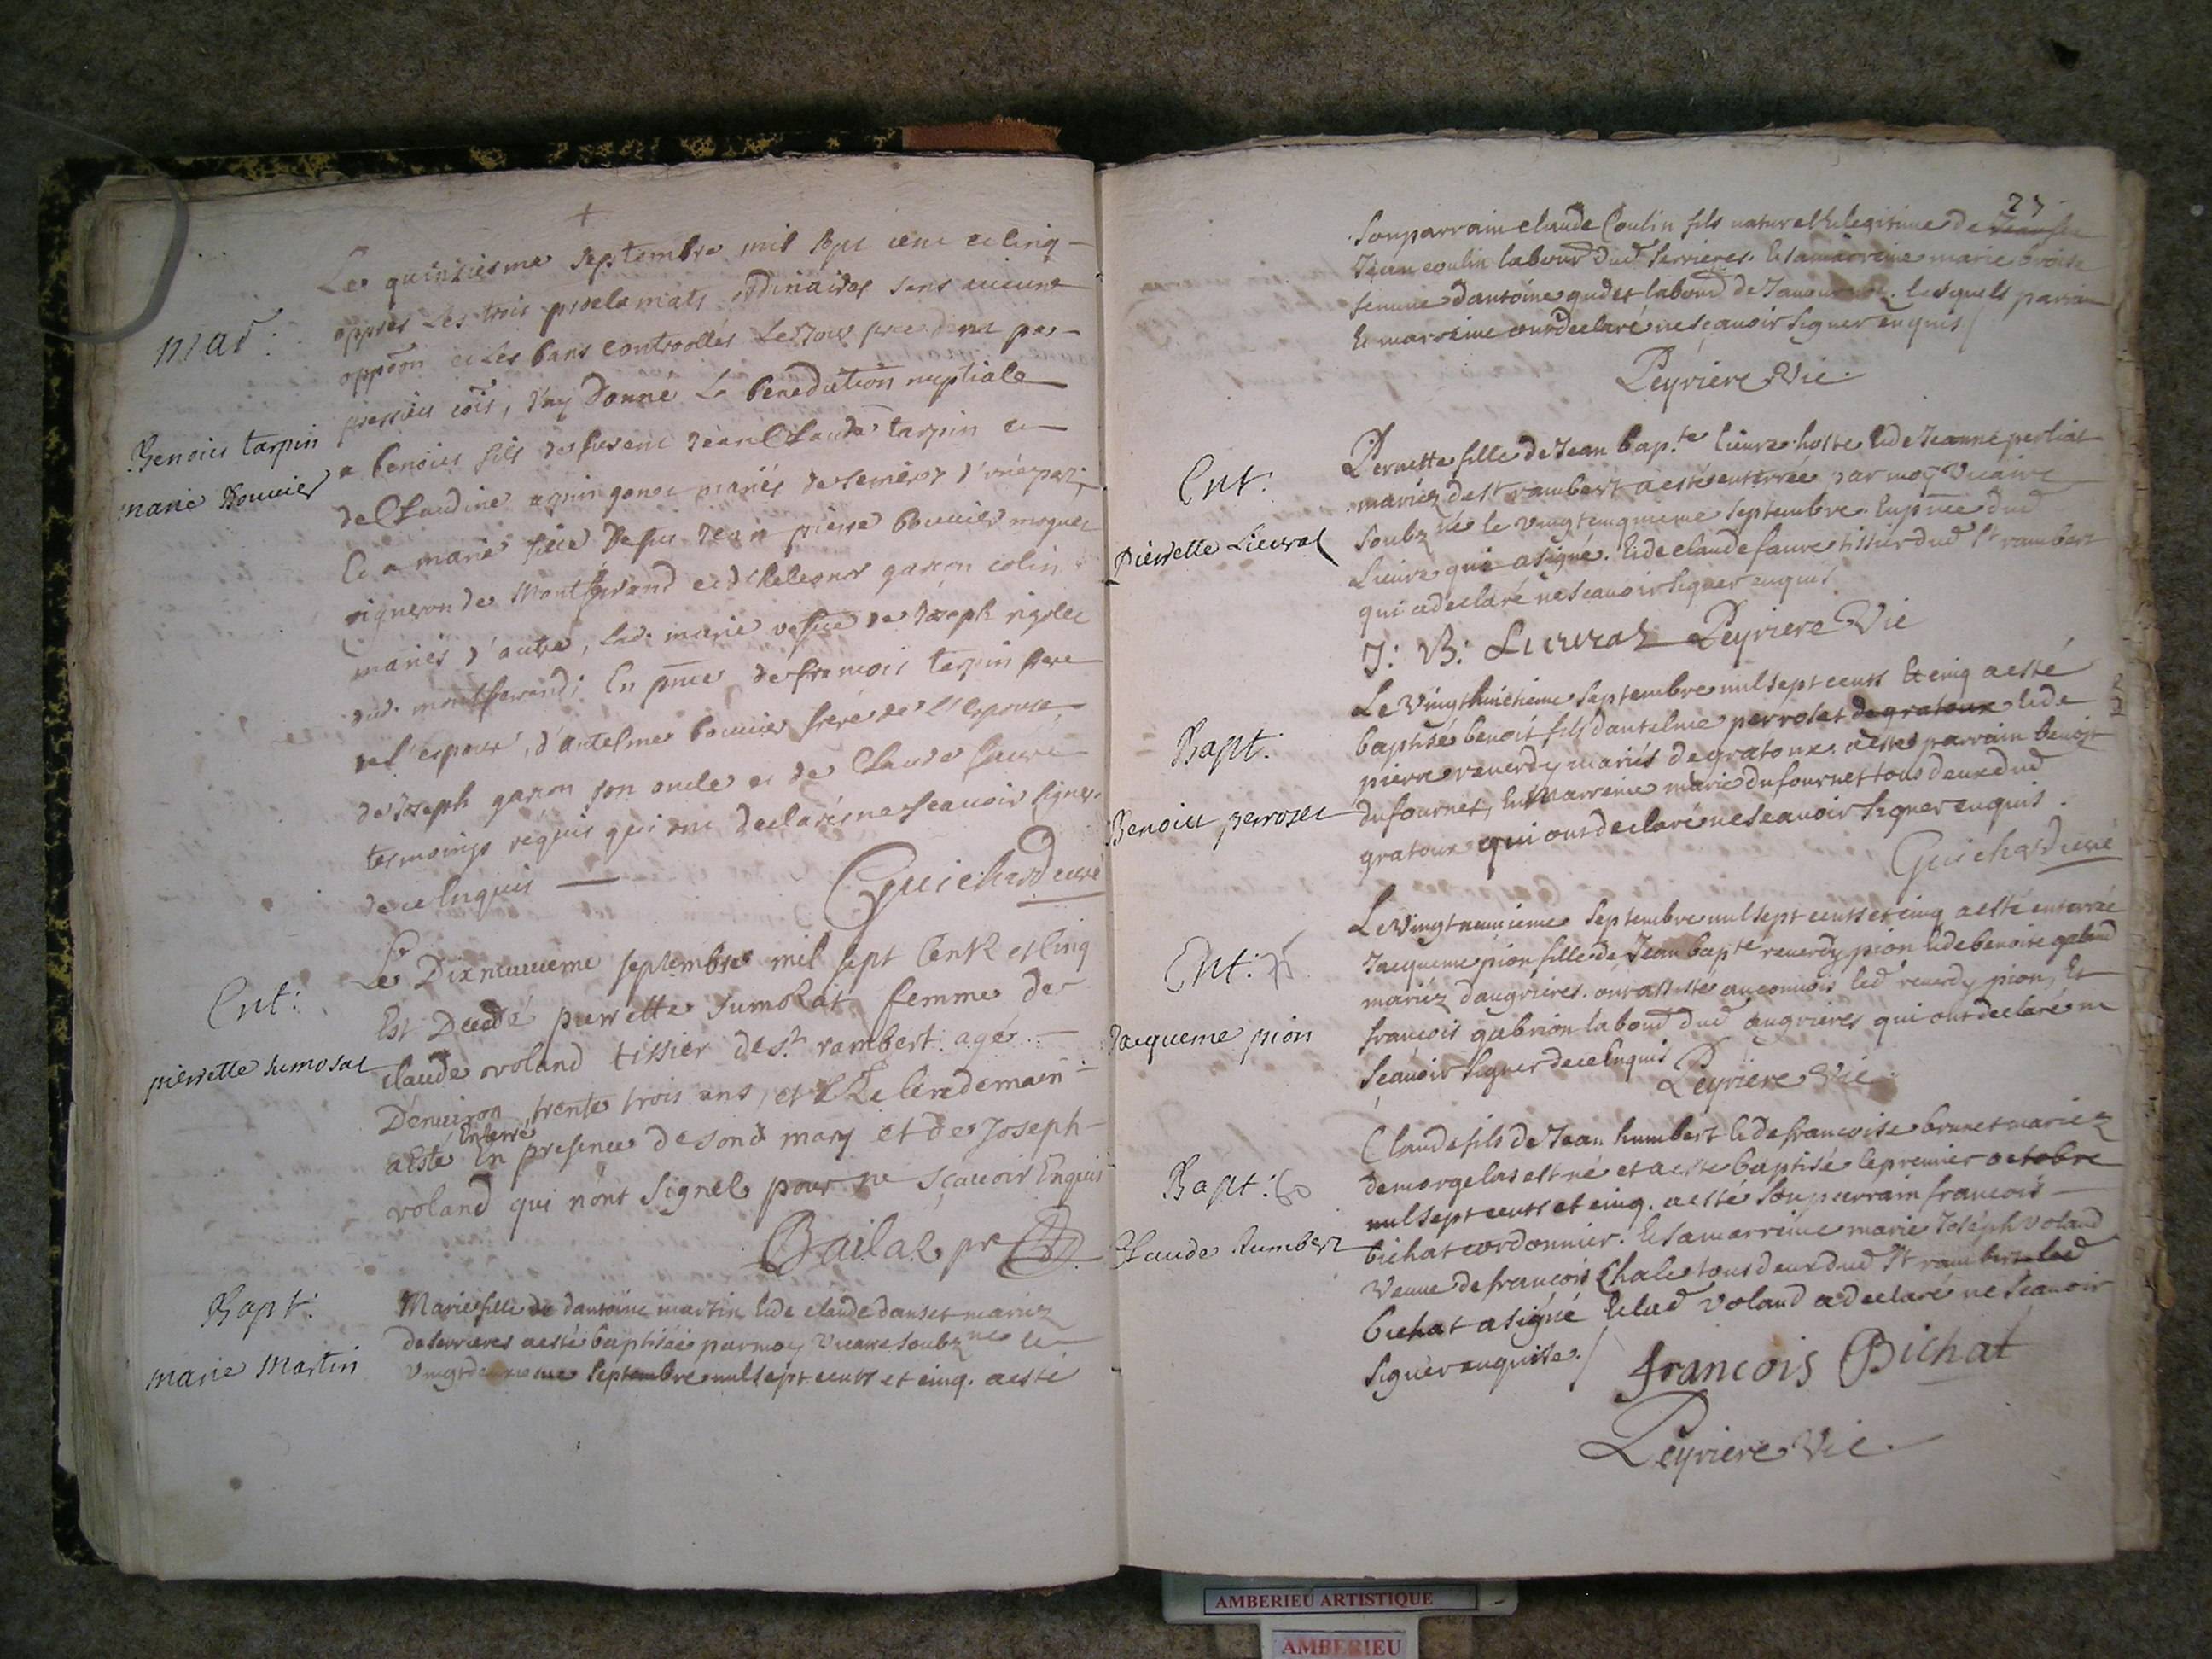 Le quinsiesme Septembre mil sept cent et cinq
mar:
appres Les trois proclamats ordinaires sans aucune
oppoōn et Les bans controollés Le jour precedent par
pressieu cōis, J'ay Donné La benediction nuptiale
Benoict tarpin
marie Bouvier
a benoict fils de fusent Jean Claude tarpin et
de Claudine mariés de d'une part,
Et a marie fille de fut Jean pierre bouvier
vigneron de Montferrand et d'heleonor garron colin
mariés d'autre, Lad. marie vefve de Joseph rigollet
dud. montferrand; En pnce de francois tarpin frere
de l'espoux, d'Antelme bouvier frere de L'espouse
de Joseph garron son oncle et de Claude faure
tesmoings requis qui ont declarés ne scavoir signer
de ce Enquis Guichard curé
Ent:
pierrette sumosat
Le Dixneuvieme septembre mil sept Cent et Cinq
Est Decedé pierrette sumosat femme de
claude voland tissier de St. rambert agé
D'environ trente trois ans, et Le lendemain
Enterré
a esté En presence de sond mary et de Joseph
voland qui n'ont signel pour ne sçavoir Enquis
Bailat pr
Bapt:
marie Martin
Marie fille de dantoine martin Et de claude danset mariez
de serrieres a esté baptisée par moy Vicaire soubzne le
Vingtdeuxieme Septembre mil sept cents et cinq. a esté
27
Son parrain claude Coulin fils naturel & legitime de Jean feu
Jean coulin labourd dud Serrieres. Et sa marreine marie
femme d'antoine gudet labourd de Lesquels parrain
Et marreine ont declaré ne sçavoir signer enquis /
Peyriere Vic.
Ent:
Pierrette Lieuvrat
Pernette fille de Jean bap.te lieuvra hoste Et de Jeanne perliat
mariez de st rambert a esté enterrée par moy Vicaire
Soubzné le vingtcinqmeme Septembre. En pnce dud
Lieuvra qui a signé. Et de claude faure tissier dud St rambert
qui a declaré ne Scavoir signer enquis
J: B: Lieuvrat Peyriere Vic
Bapt:
Benoict perroset
Le Vingthuictieme Septembre mil sept cents Et cinq a esté
baptisé benoit fils d'antelme perroset de gratoux Et de
pierre reverdy mariés de gratoux. a esté parrain benoit
dufournet, Et Marreine marie dufournet tous deux dud
gratoux qui ont declaré ne Scavoir signer enquis.
Guichard curé
Ent:
Jacqueme pion
Le Vingtneuvieme Septembre mil sept cents et cinq a esté enterrée
Jacqueme pion fille de Jean bapte reverdy pion Et de benoite galand
mariez d'augrieres. ont assisté au convois led reverdy pion, Et
francois gabrion labourd dud augrieres qui ont declaré ne
Sçavoir signer de ce Enquis Peyriere Vic.
Bapt:
Claude humbert
Claude fils de Jean humbert Et de francoise brunet mariez
de morgelas est né et a esté baptisé le premier octobre
mil sept cents et cinq. a esté Son parrain francois
bichat cordonnier. Et sa marreine marie Joseph voland
Veuve de francois Chale tous deux dud St rambert led
bichat a signé Et lad voland a declaré ne Scavoir
signer enquise. /
francois Bichat
Peyriere Vic.
AMBERIEU ARTISTIQUE
AMBERIEU